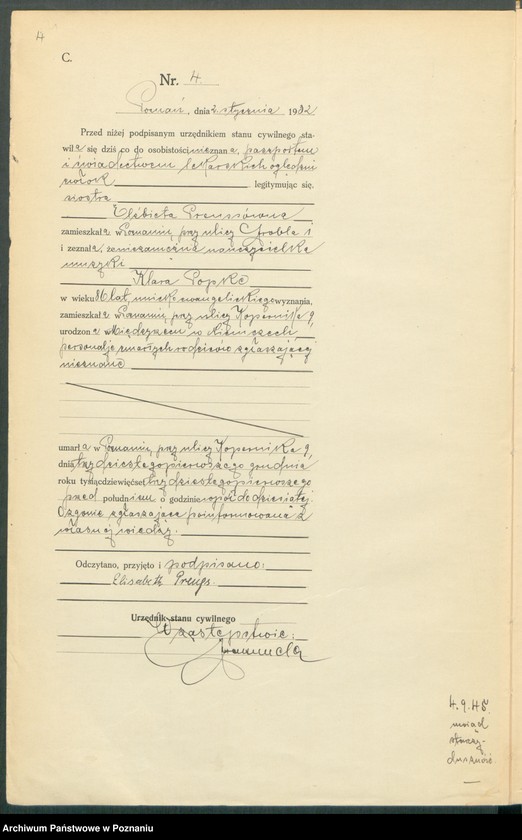 4
C.
Nr. 4.
Poznań, dnia 2 stycznia 1932
Przed niżej podpisanym urzędnikiem stanu cywilnego sta-
wiła się dziś co do osobistości nieznana, paszportem
i świadectwem lekarskich oględzin
zwłok legitymując się.
siostra
Elżbieta Preussówna
zamieszkała w Poznaniu, przy ulicy Grobla 1
i zeznała, że niezamężna nauczycielka
muzyki
Klara Popke
w wieku lat, ewangelickiego wyznania,
zamieszkała w Poznaniu, przy ulicy Kopernika 9,
urodzona w Międzyrzecu w Niemczech
personalja zmarłych rodziców zgłaszającej
nieznane
umarła w Poznaniu, przy ulicy Kopernika 9,
dnia trzydziestego pierwszego grudnia
roku tysiąc dziewięćset trzydziestego pierwszego
przed południem o godzinie wpół do dziesiątej.
O zgonie zgłaszająca poinformowana z
własnej wiedzy.
Odczytano, przyjęto i podpisano:
Elisabeth Preuss.
Urzędnik stanu cywilnego
W zastępstwie:
4.9.45
uwiąd
starcz-
duszność
Archiwum Państwowe w Poznaniu